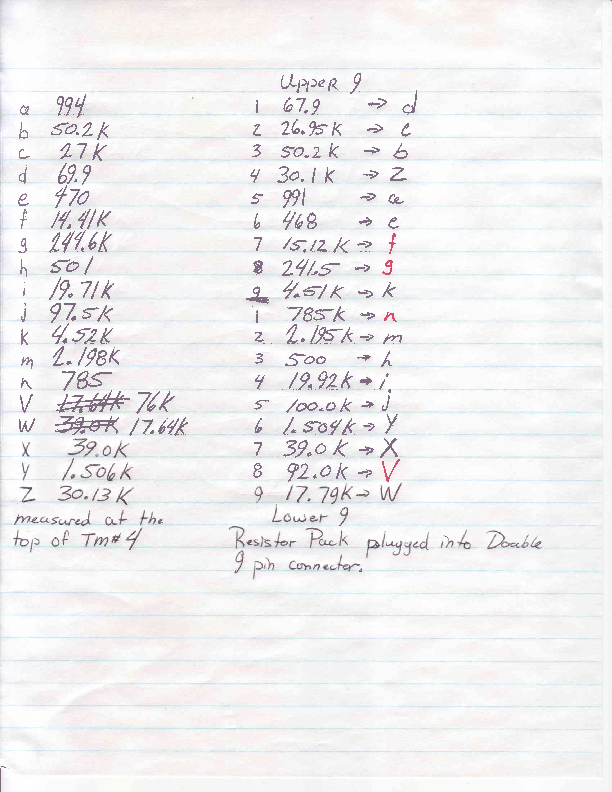 Upper 9
a 994 1 67.9 → d
b 50.2K 2 26.95K → c
c 27K 3 50.2K → b
d 69.9 4 30.1K → Z
e 470 5 991 → a
f 14.41K 6 468 → e
g 244.6K 7 15.12K → f
h 501 8 241.5 → g
i 19.71K 9 4.51K → k
j 97.5K 1 785K → n
k 4.52K 2 2.195K → m
m 2.198K 3 500 → h
n 785 4 19.92K → i
V 17.64K 76K 5 100.0K → j
W 39.0K 17.64K 6 1.504K → Y
X 39.0K 7 39.0K → X
Y 1.506K 8 92.0K → V
Z 30.13K 9 17.79K → W
measured at the Lower 9
top of Tm#4 Resistor Pack plugged into Double
9 pin connector.